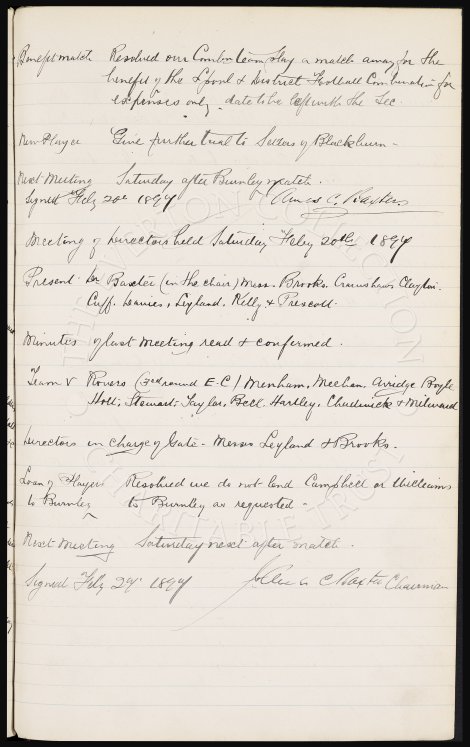 Benefit match Resolved our Combn team play a match away for the
benefit of the L'pool & District Football Combination for
expenses only, date to be left with the Sec.
New Player Give further trial to Sellers of Blackburn -
Next Meeting Saturday after Burnley match.
Signed Feby 20th 1897 James C. Baxter
Meeting of Directors held Saturday Feby 20th 1897
Present Dr Baxter (in the chair) Messrs. Brooks. Crawshaw Clayton.
Cuff. Davies, Leyland. Kelly & Prescott.
Minutes of last meeting read & confirmed.
Team V Rovers (3rd round E-C) Menham, Meehan, Arridge Boyle
Holt, Stewart, Taylor, Bell, Hartley, Chadwick & Milward
Directors in charge of Gate - Messrs Leyland & Brooks.
Loan of Players Resolved we do not lend Campbell or Williams
to Burnley to Burnley as requested -
Next Meeting Saturday next after match.
Signed Feby 27 1897 James C Baxter Chairman
THE EVERTON COLLECTION
CHARITABLE TRUST